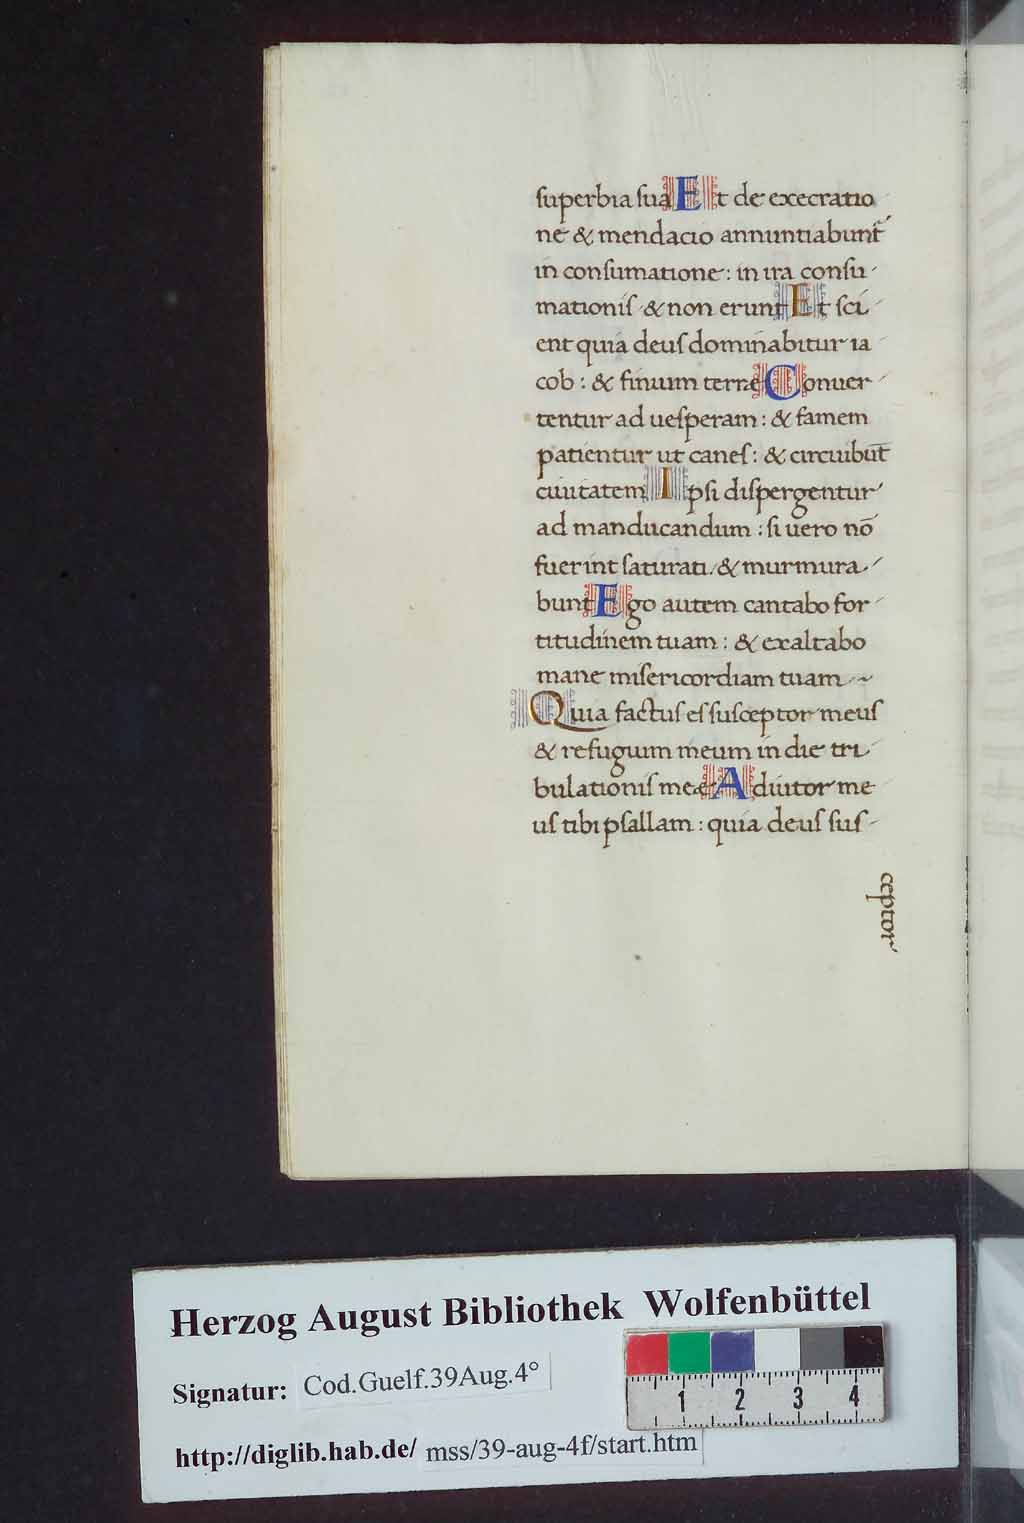 superbia sua Et de execratio
ne & mendacio annuntiabunt᷑
in consumatione: in ira consu
mationis & non erunt Et sci
ent quia deus dominabitur ia
cob: & finium terrę Conuer
tentur ad uesperam: & famem
patientur ut canes: & circuibūt
ciuitatem Ipsi dispergentur
ad manducandum: si uero nō
fuerint saturati / & murmura
bunt Ego autem cantabo for
titudinem tuam: & exaltabo
mane misericordiam tuam
Quia factus es susceptor meus
& refugium meum in die tri
bulationis meę Adiutor me
us tibi psallam: quia deus sus
ceptor
Herzog August Bibliothek Wolfenbüttel
Signatur: Cod.Guelf.39Aug.4°
http://diglib.hab.de/ mss/39-aug-4f/start.htm
1 2 3 4